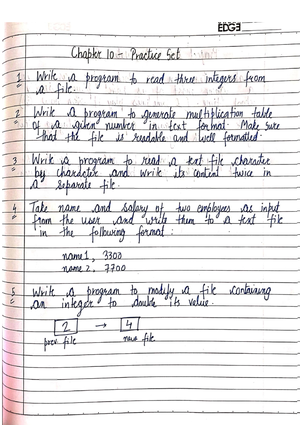 EDGE
Chapter 10 - Practice Set
1 Write a program to read three integers from
a file.
2 Write a program to generate multiplication table
of a given number in text format. Make sure
that the file is readable and well formatted.
3 Write a program to read a text file character
by character and write its content twice in
a separate file.
4 Take name and salary of two employees as input
from the user and write them to a text file
in the following format :
name1, 3300
name2, 7700
5 Write a program to modify a file containing
an integer to double its value.
2 → 4
prev. file new file